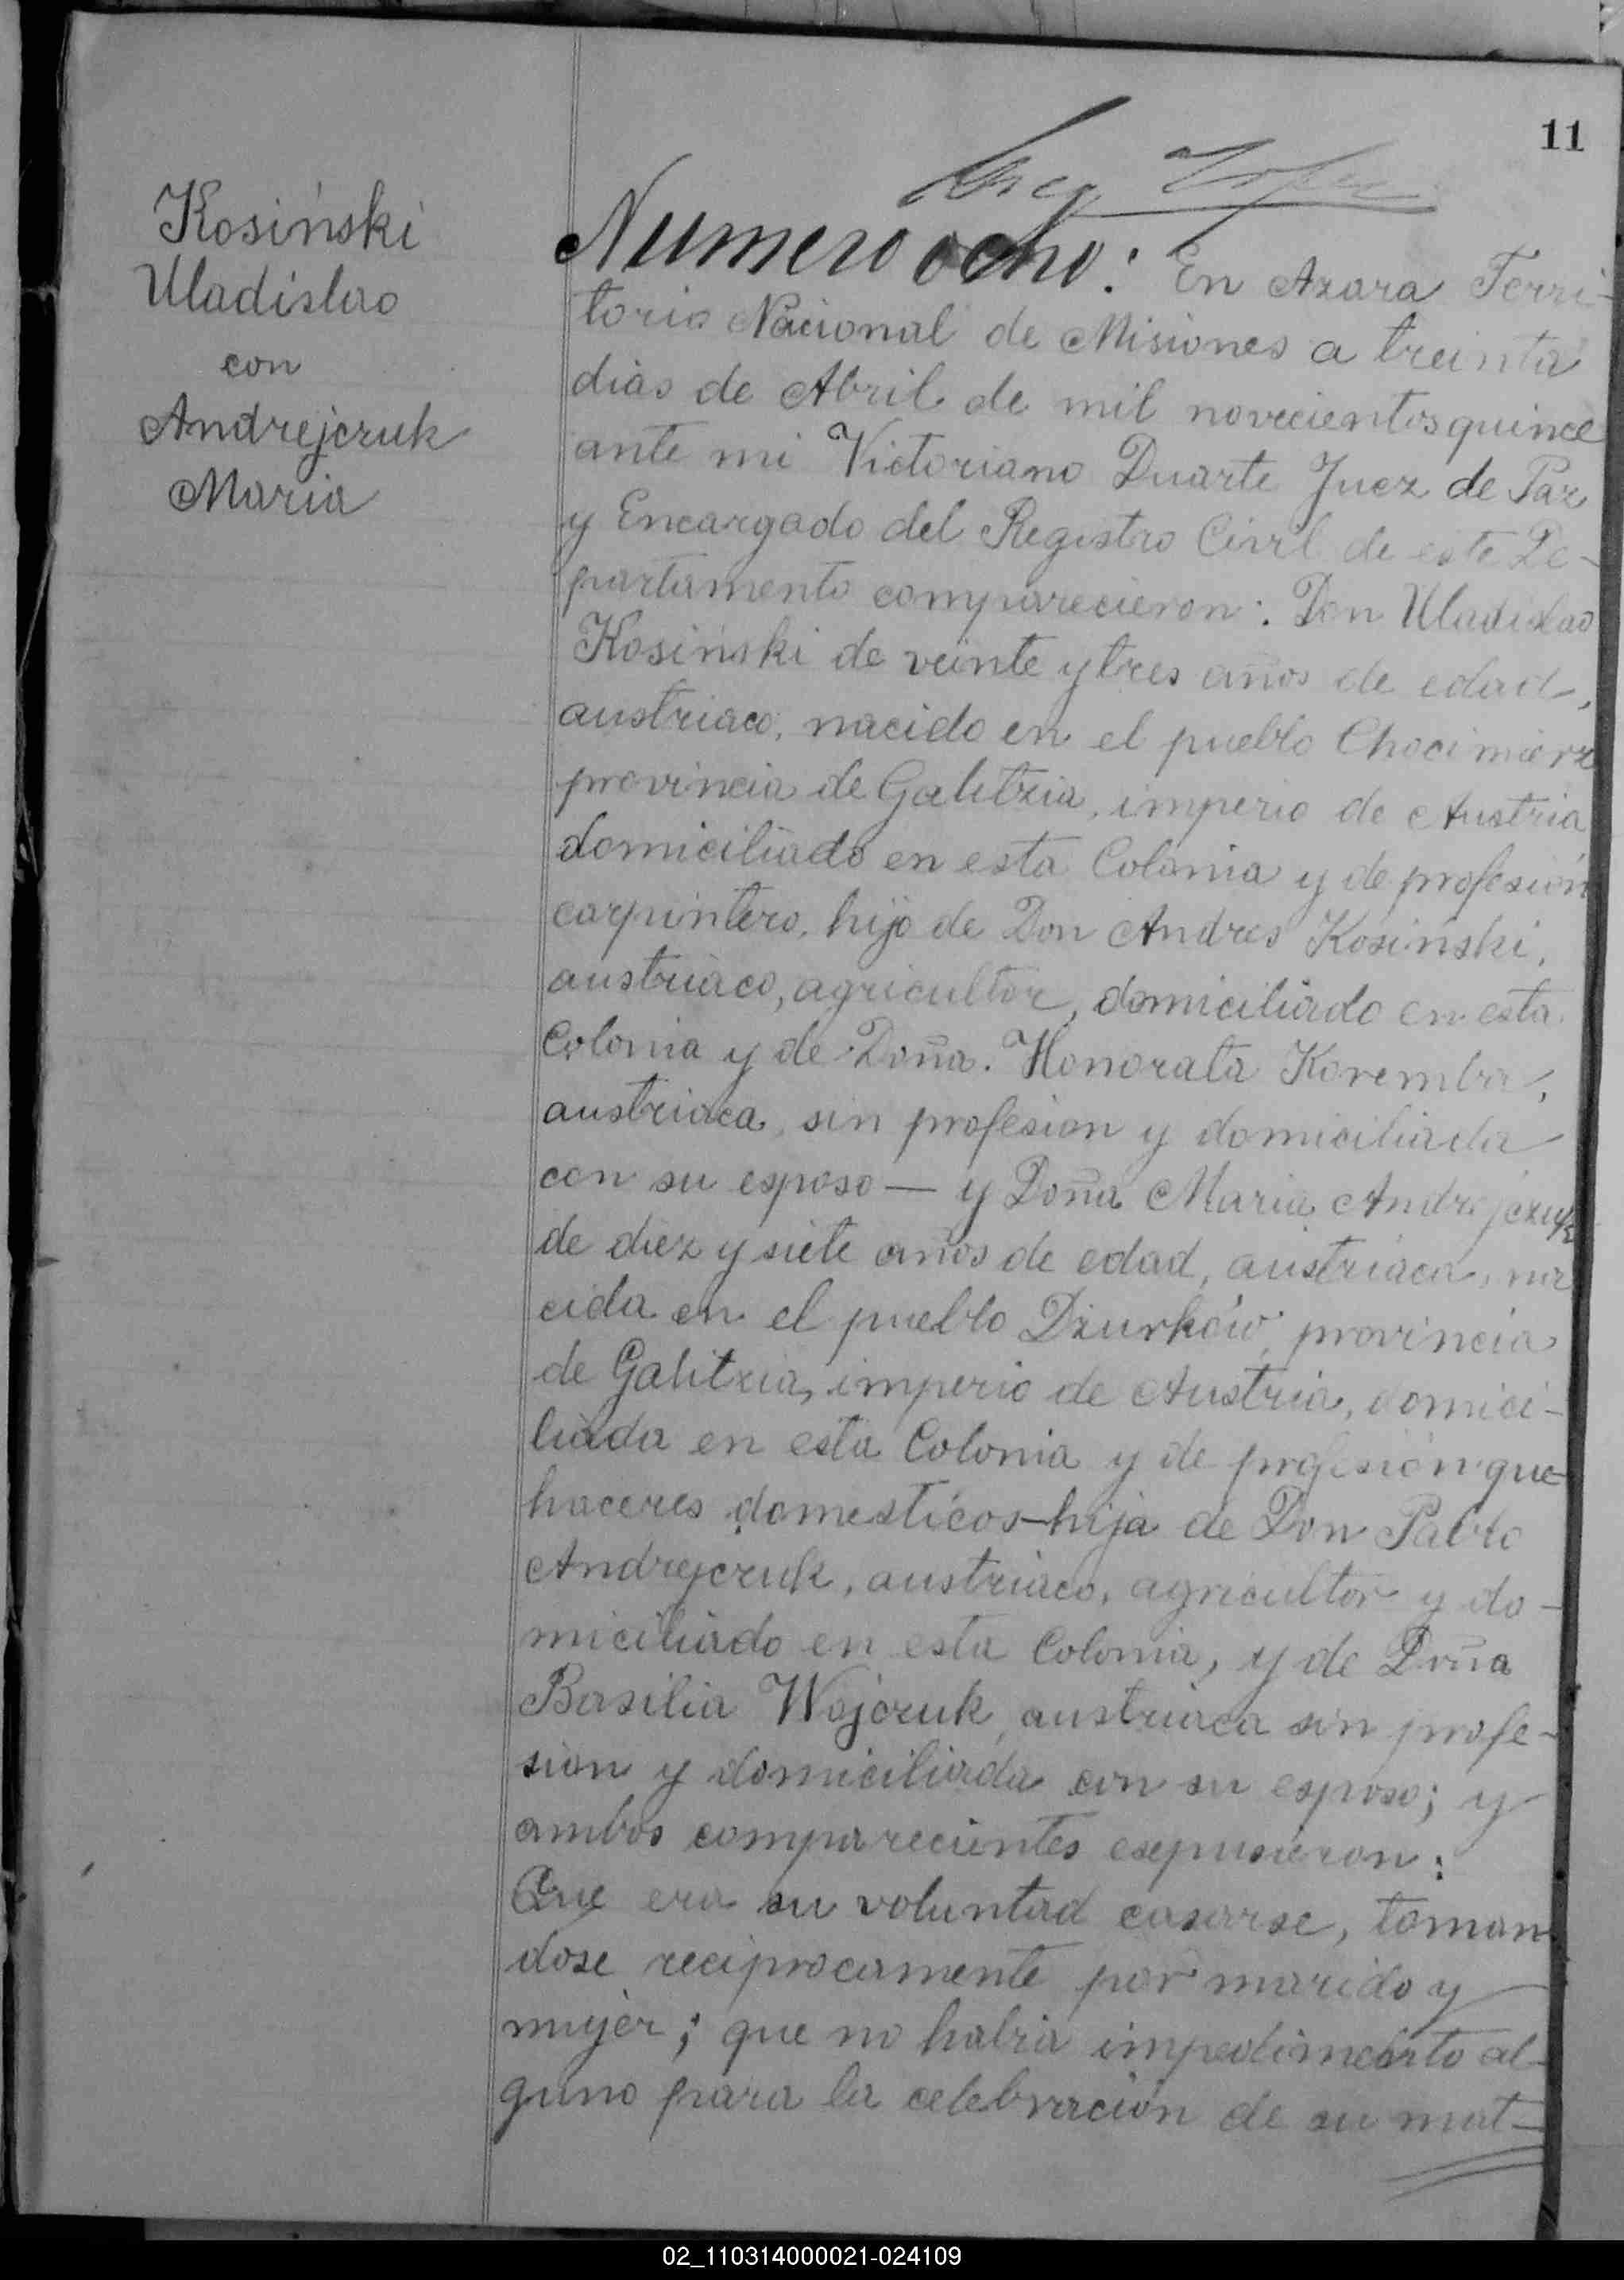 11
Kosiński
Uladislao
con
Andrejczuk
Maria
Numero ocho: En Azara Terri-
torio Nacional de Misiones a treinta
dias de Abril de mil novecientos quince
ante mi Victoriano Duarte Juez de Paz
y Encargado del Registro Civil de este De-
partamento comparecieron: Don Uladislao
Kosiński de veinte y tres años de edad,
austriaco, nacido en el pueblo Chocimierz
provincia de Galitzia, imperio de Austria
domiciliado en esta Colonia y de profesión
carpintero, hijo de Don Andres Kosiński,
austriaco, agricultor, domiciliado en esta
Colonia y de Doña Honorata Koremba,
austriaca, sin profesion y domiciliada
con su esposo — y Doña Maria Andrejczuk
de diez y siete años de edad, austriaca, na
cida en el pueblo Dżurków, provincia
de Galitzia, imperio de Austria, domici-
liada en esta Colonia y de profesión que-
haceres domesticos - hija de Don Pablo
Andrejczuk, austriaco, agricultor y do-
miciliado en esta Colonia, y de Doña
Basilia Wojczuk, austriaca sin profe-
sion y domiciliada con su esposo; y
ambos comparecientes esepusieron:
Que era su voluntad casarse, toman
dose reciprocamente por marido y
mujer; que no habia impedimento al-
guno para la celebración de su mat-
02_110314000021-024109